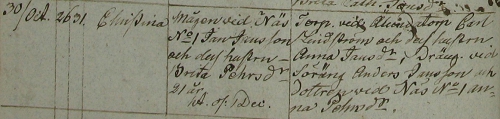 30/Oct. 26 31. Christina
Mågen vid Näs
No 1 Jan Jansson
och des hustru
Brita Pehrsdr
21 år
kt. af. 1 Dec.
Torp. ved Carl
Lindström och des hustru
Anna Jansdr, Dräng. vid
Anders Jansson och
dottren ved Näs No 1 an-
na Pehrsdr.